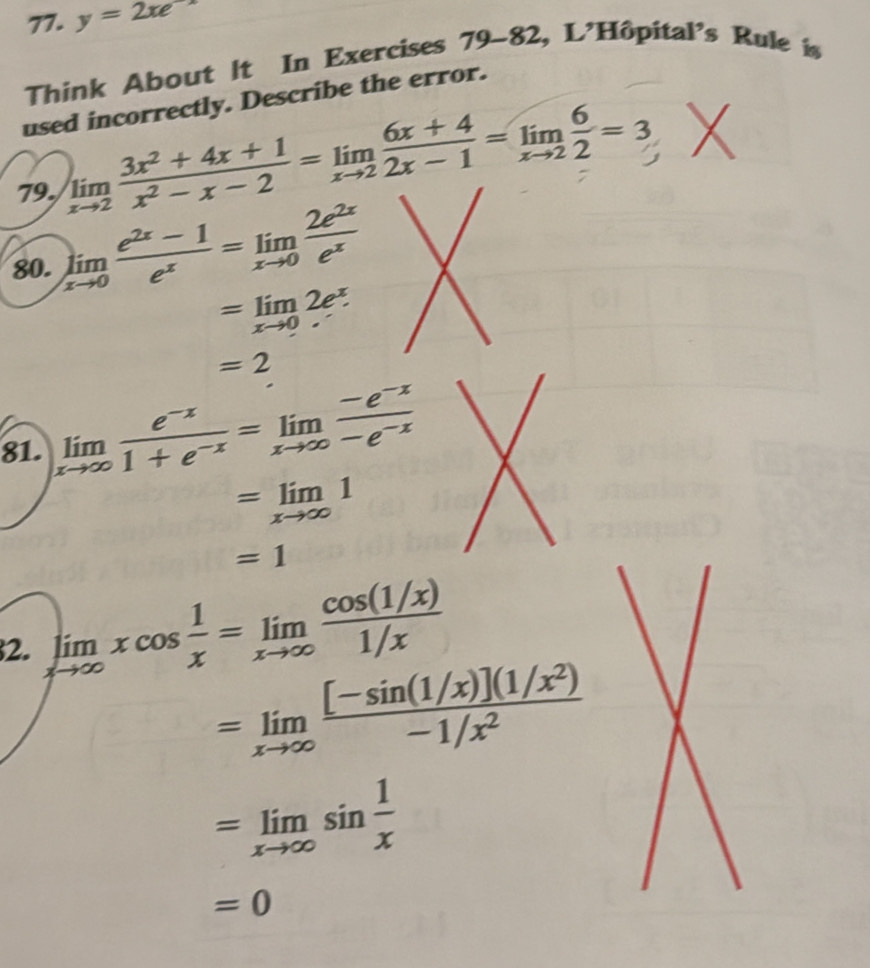 77. y = 2xe⁻
Think About It In Exercises 79–82, L'Hôpital's Rule is
used incorrectly. Describe the error.
79. lim x→2 (3x² + 4x + 1)/(x² − x − 2) = lim x→2 (6x + 4)/(2x − 1) = lim x→2 6/2 = 3
80. lim x→0 (e²ˣ − 1)/eˣ = lim x→0 2e²ˣ/eˣ
= lim x→0 2eˣ
= 2
81. lim x→∞ e⁻ˣ/(1 + e⁻ˣ) = lim x→∞ −e⁻ˣ/−e⁻ˣ
= lim x→∞ 1
= 1
82. lim x→∞ x cos 1/x = lim x→∞ cos(1/x)/(1/x)
= lim x→∞ [−sin(1/x)](1/x²)/(−1/x²)
= lim x→∞ sin 1/x
= 0